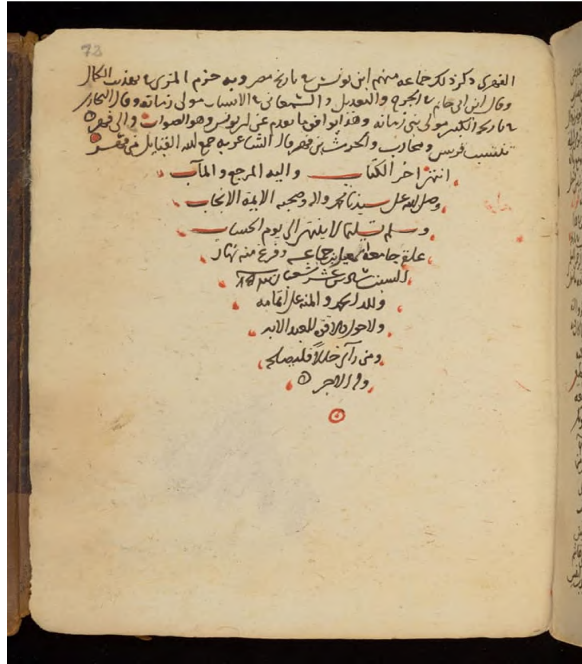 73
الفهرى وذكر ذلك جماعه منهم ابن يونس فى تاريخ مصر وبه جزم المزى فى تهذيب الكمال
وقال ابن ابى حاتم فى الجرح والتعديل والسمعانى فى الانساب مولى بنى رمانه وقال البخارى
فى تاريخه الكبير مولى بنى رمانه وهذا يوافق ما تقدم عن ابن يونس وهو الصواب والى فهر
تنتسب قريش ومحارب والحرث بن فهر قال الشاعر به جمع الله القبايل من فهر
انتهى اخر الكتاب واليه المرجع والمآب
وصلى الله على سيدنا محمد واله وصحبه الايمة الانجاب
وسلم تسليما لا ينتهى الى يوم الحساب
علقه جامعه جماعه وفرغ منه نهار
السبت سادس عشر شعبان
ولله الحمد والمنه على اتمامه
ولا حول ولا قوة للعبد الا به
ومن رآى خللا فليصلحه
وله الاجر